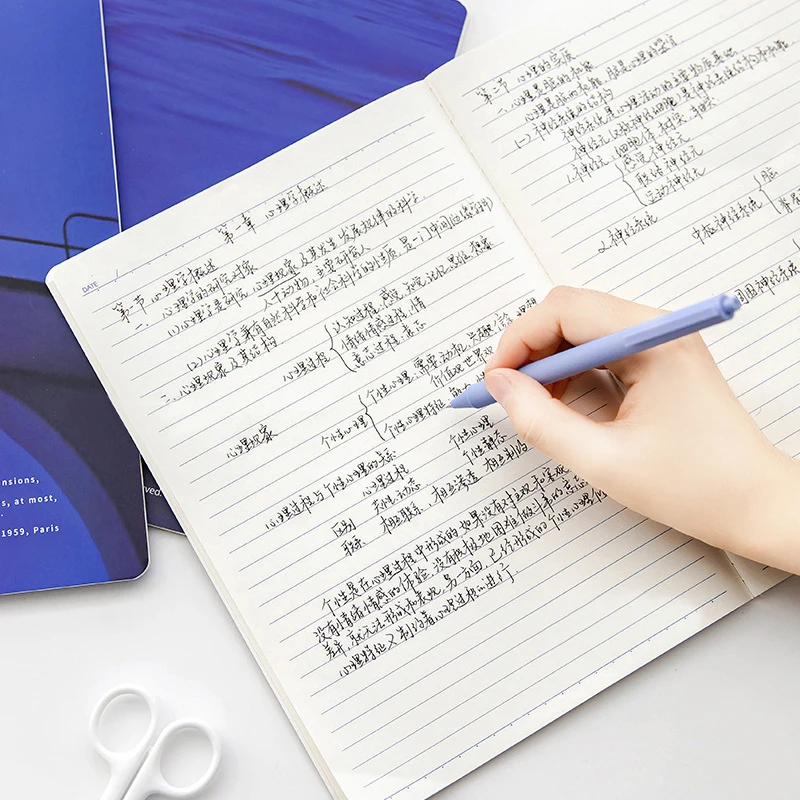 DATE /
第一章 心理学概述
第一节 心理学概述
一、心理学的研究对象
(1)心理学是研究 心理现象及其发生、发展规律的科学.
人+动物,主要研究人
(2)心理学兼有自然科学和社会科学的性质,是一门中间(边缘)学科
二、心理现象及其结构
心理过程
认知过程:感觉、知觉、记忆、思维、想象
情绪情感过程:情
意志过程:意志
心理现象
个性心理
个性心理 需要、动机、兴趣、信念、理想
价值观、世界观
个性心理特征:能力
个性心理
个性静态
心理过程与个性心理的关系
心理过程
区别 共性、动态
联系 相互联系,相互渗透,相互制约
个性是在心理过程中形成的,如果没有对客观和实现
没有情绪情感的体验,没有积极地困难做斗争的意志
差异,就无法形成和表现.另方面,已经形成的个性心理
心理特征又制约着心理过程的进行
第二节 心理的实质
一、心理是脑的机能
心理是脑的机能,脑是心理的器官
(一)神经系统的结构
神经系统是心理活动的主要物质基础
1.神经元:细胞体、树突、轴突
感觉神经元
联络神经元
运动神经元
2.神经系统
中枢神经系统
脑
脊髓
周围神经系统
nsions,
s, at most,
1959, Paris
rved.